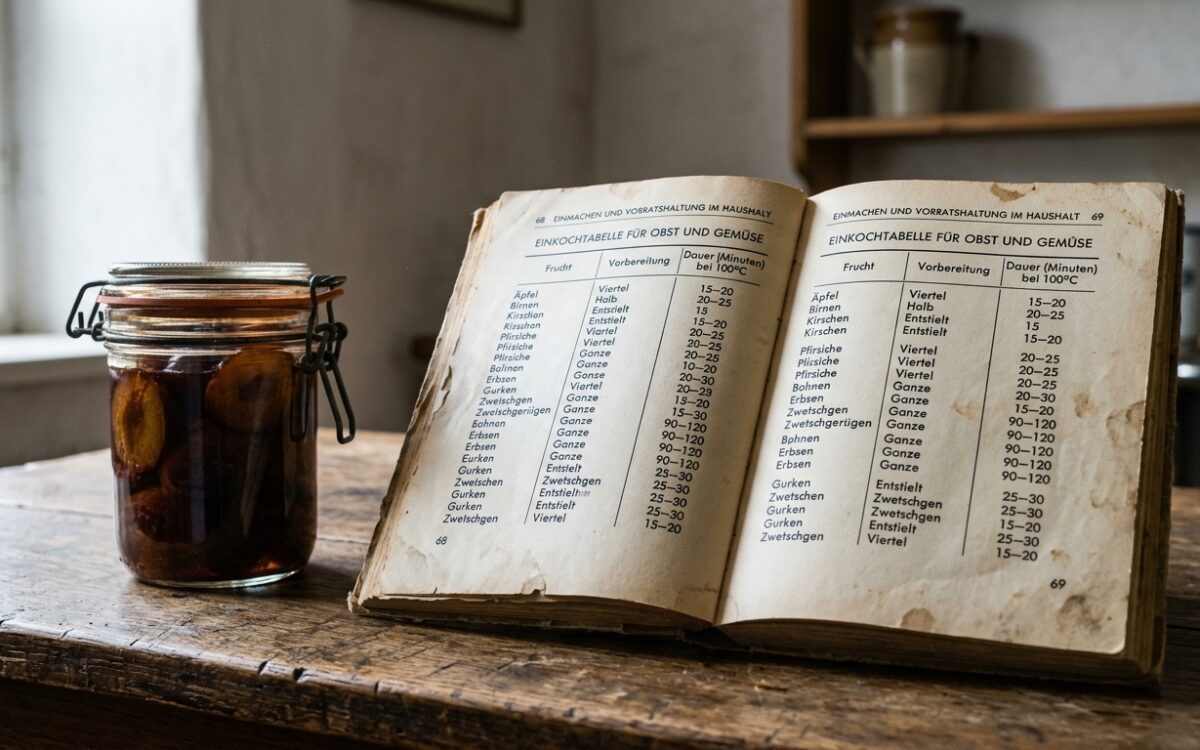 68 EINMACHEN UND VORRATSHALTUNG IM HAUSHALY
EINKOCHTABELLE FÜR OBST UND GEMÜSE
Frucht Vorbereitung Dauer (Minuten)
bei 100°C
Äpfel Viertel 15–20
Birnen Halb 20–25
Kirschen Entscielt 15
Kisschen Entstielt 15–20
Pfirsiche Viartel 20–25
Pfirsiche Viertel 20–25
Pfirsiche Ganze 20–25
Bolinen Ganze 10–20
Erbsen Gonse 20–30
Gurken Viertel 20–23
Zwetschgen Ganze 15–20
Zwetschgerügen Ganze 15–30
Bohnen Ganze 90–120
Erbsen Ganze 90–120
Erbsen Ganze 90–120
Eurken Entstielt 90–120
Gurken Zwetschgen 25–30
Zwetschen Entstielt 25–30
Gurken Entstielt 25–30
Gurken Viertel 25–30
Zwetschgen 15–20
68
EINMACHEN UND VORRATSHALTUNG IM HAUSHALT 69
EINKOCHTABELLE FÜR OBST UND GEMÜSE
Frucht Vorbereitung Dauer (Minuten)
bei 100°C
Äpfel Viertel 15–20
Birnen Halb 20–25
Kirschen Entstielt 15
Kirschen Entstielt 15–20
Pfirsiche Viertel 20–25
Viertel 20–25
Pfirsiche Viertel 20–25
Bohnen Ganze 20–30
Erbsen Ganze 15–20
Zwetschgen Ganze 90–120
Zwetschgerügen Ganze 90–120
Bphnen Ganze 90–120
Erbsen Gonze 90–120
Erbsen Ganze 90–120
Gurken Entstielt 25–30
Zwetschen Zwetschgen 25–30
Gurken Zwetschgen 15–20
Gurken Entstielt 25–30
Zwetschgen Viertel 15–20
69